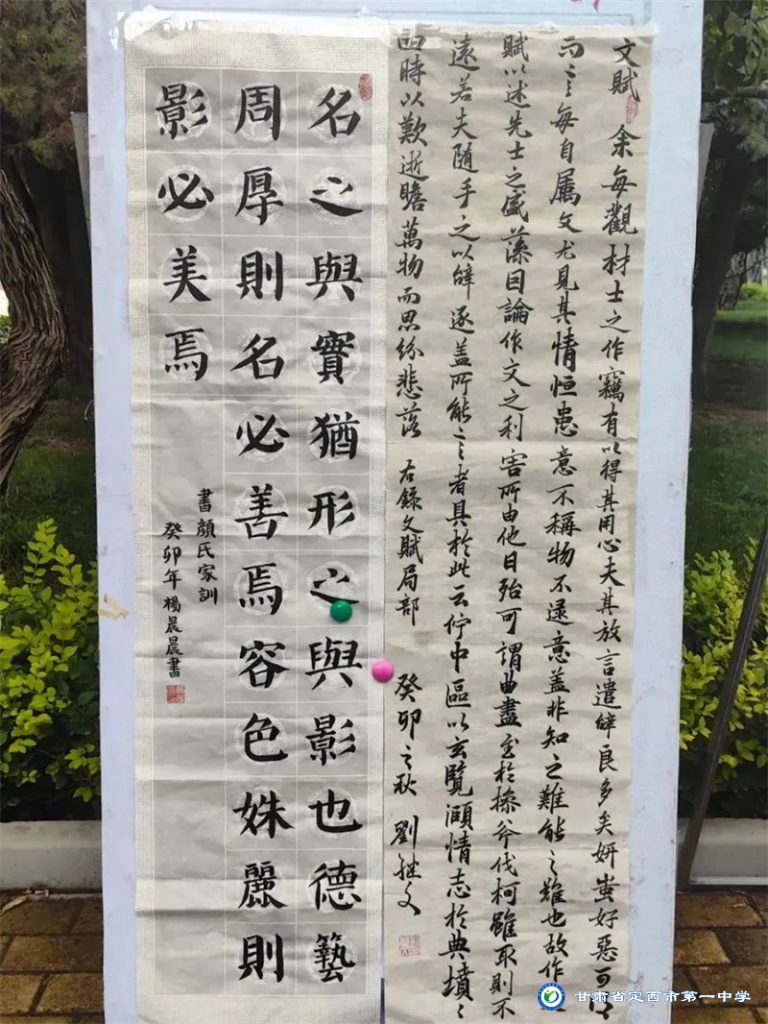 文賦 余每觀材士之作竊有以得其用心夫其放言遣辞良多矣妍蚩好惡可得
而言每自屬文尤見其情恒患意不稱物不逮意盖非知之難能之難也故作
賦以述先士之盛藻因論作文之利害所由他日殆可謂曲盡至於操斧伐柯雖取則不
遠若夫随手之以辞逐盖所能言者具於此云佇中區以玄覽頤情志於典墳〻
四時以歎逝瞻萬物而思紛悲落 右錄文賦局部 癸卯之秋 劉継文
名之與實猶形之與影也德藝
周厚則名必善焉容色姝麗則
影必美焉
書顏氏家訓
癸卯年楊晨晨書
甘肃省定西市第一中学